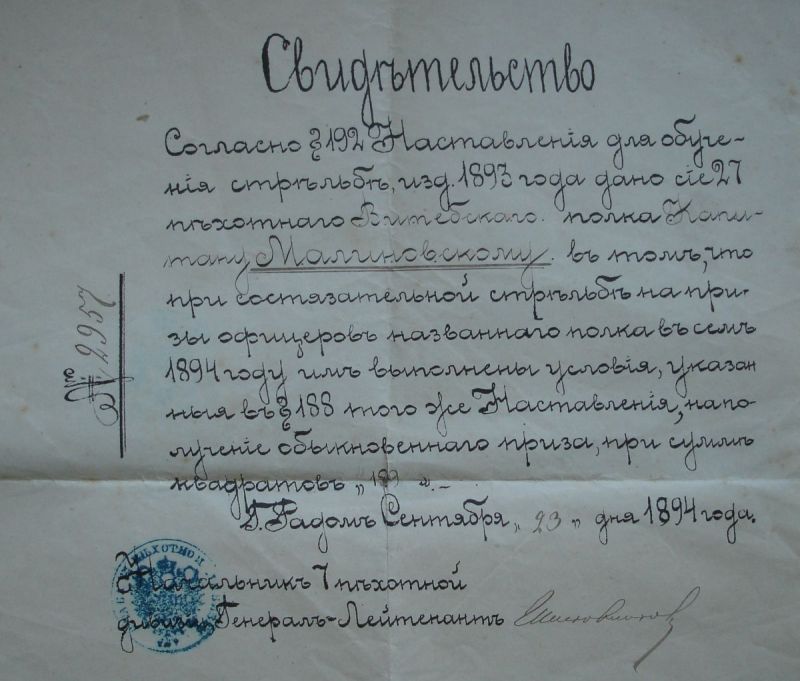 Свидѣтельство
Согласно § 192 Наставленія для обуче-
нія стрѣльбѣ, изд. 1893 года дано сіе 27
пѣхотнаго Витебскаго полка Капи-
тану Малиновскому въ томъ, что
при состязательной стрѣльбѣ на при-
зы офицеровъ названнаго полка въ семъ
1894 году имъ выполнены условія, указан
ныя въ § 188 того же Наставленія, на по-
лученіе обыкновеннаго приза, при суммѣ
квадратовъ „
Г. Радомъ Сентября „ 23 „ дня 1894 года.
Начальникъ 7 пѣхотной
дивизіи, Генералъ-Лейтенантъ
№ 2957